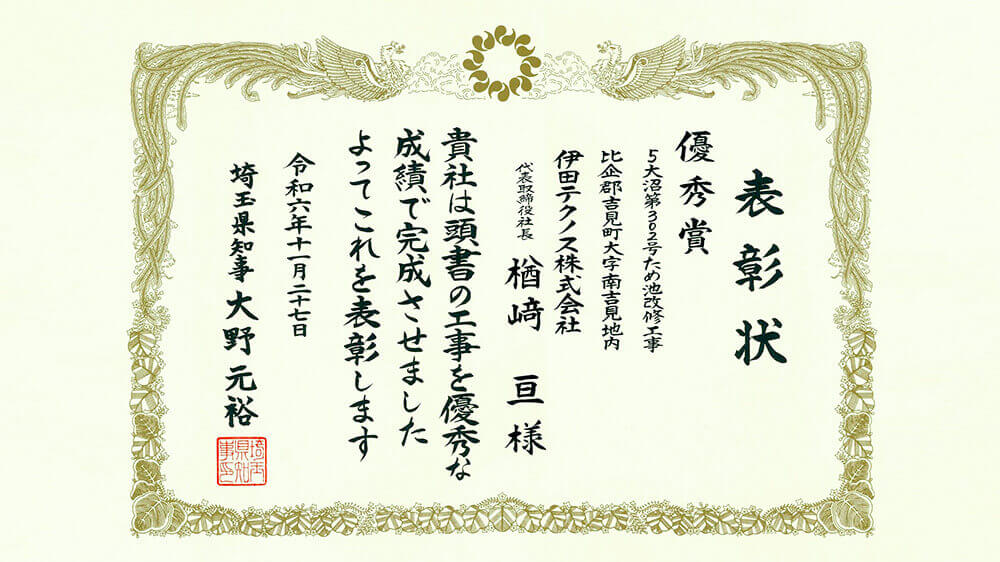 表彰状
優秀賞
5大沼第302号ため池改修工事
比企郡吉見町大字南吉見地内
伊田テクノス株式会社
代表取締役社長
楢﨑 亘 様
貴社は頭書の工事を優秀な
成績で完成させました
よってこれを表彰します
令和六年十一月二十七日
埼玉県知事 大野元裕
埼玉
県知
事印